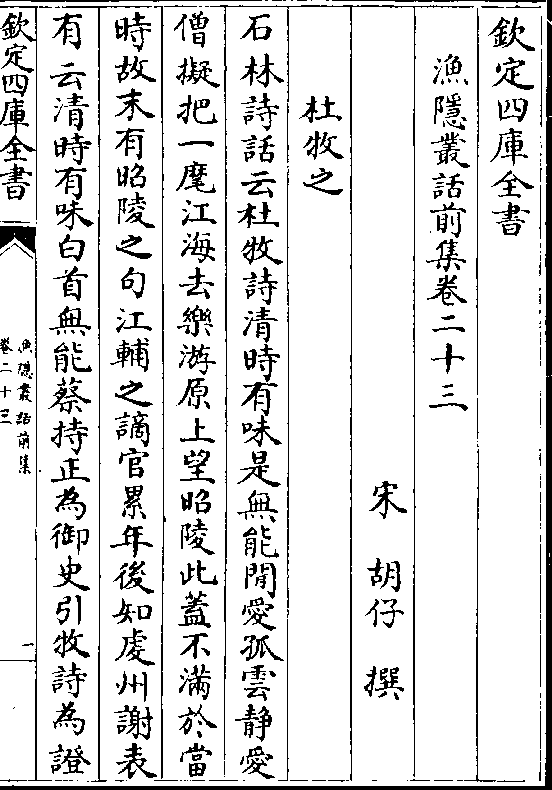 欽定四庫全書
漁隱叢話前集卷二十三
宋 胡仔 撰
杜牧之
石林詩話云杜牧詩清時有味是無能閒愛孤雲静愛
僧擬把一麾江海去樂游原上望昭陵此蓋不滿於當
時故末有昭陵之句江輔之謫官累年後知處州謝表
有云清時有味白首無能蔡持正為御史引牧詩為證
欽定四庫全書
漁隱叢話前集
卷二十三
一